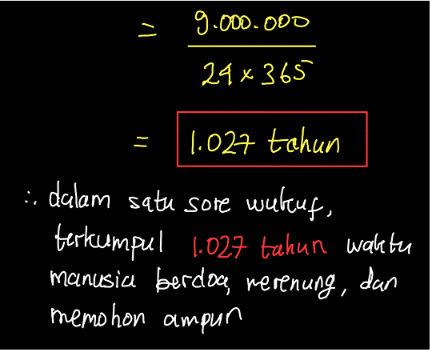 = 9.000.000
24 × 365
= 1.027 tahun
∴ dalam satu sore wukuf,
terkumpul 1.027 tahun waktu
manusia berdoa, merenung, dan
memohon ampun